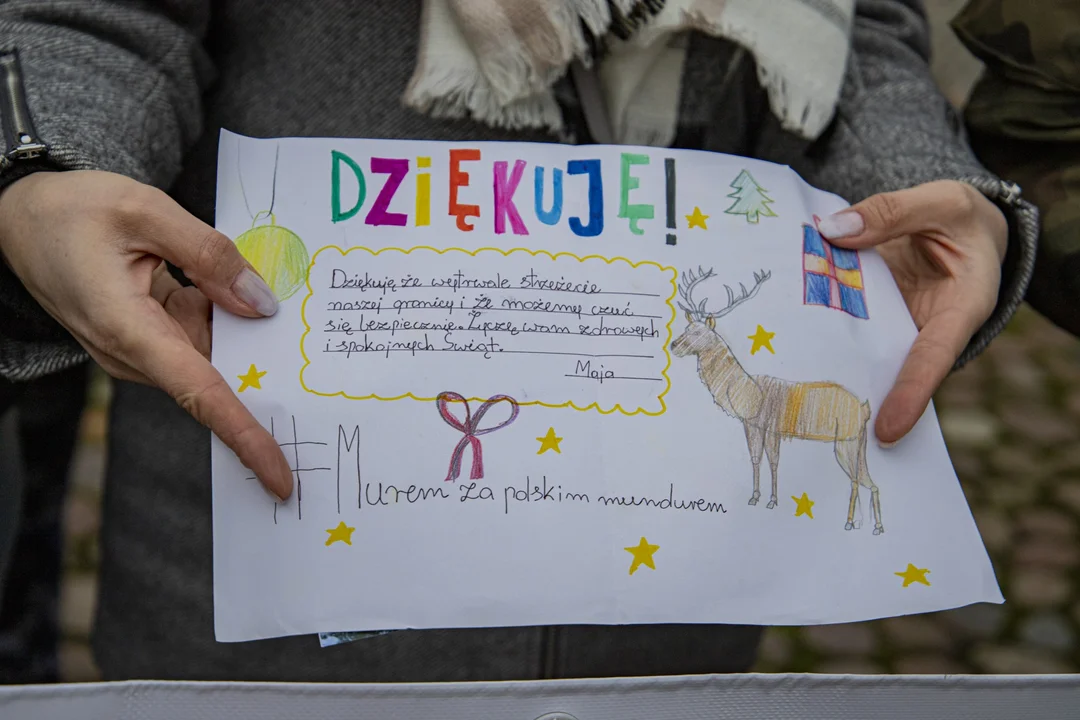 DZIĘKUJĘ!
Dziękuję że wytrwale strzeżecie
naszej granicy i że możemy czuć
się bezpiecznie. Życzę wam zdrowych
i spokojnych Świąt.
Maja
#Murem za polskim mundurem